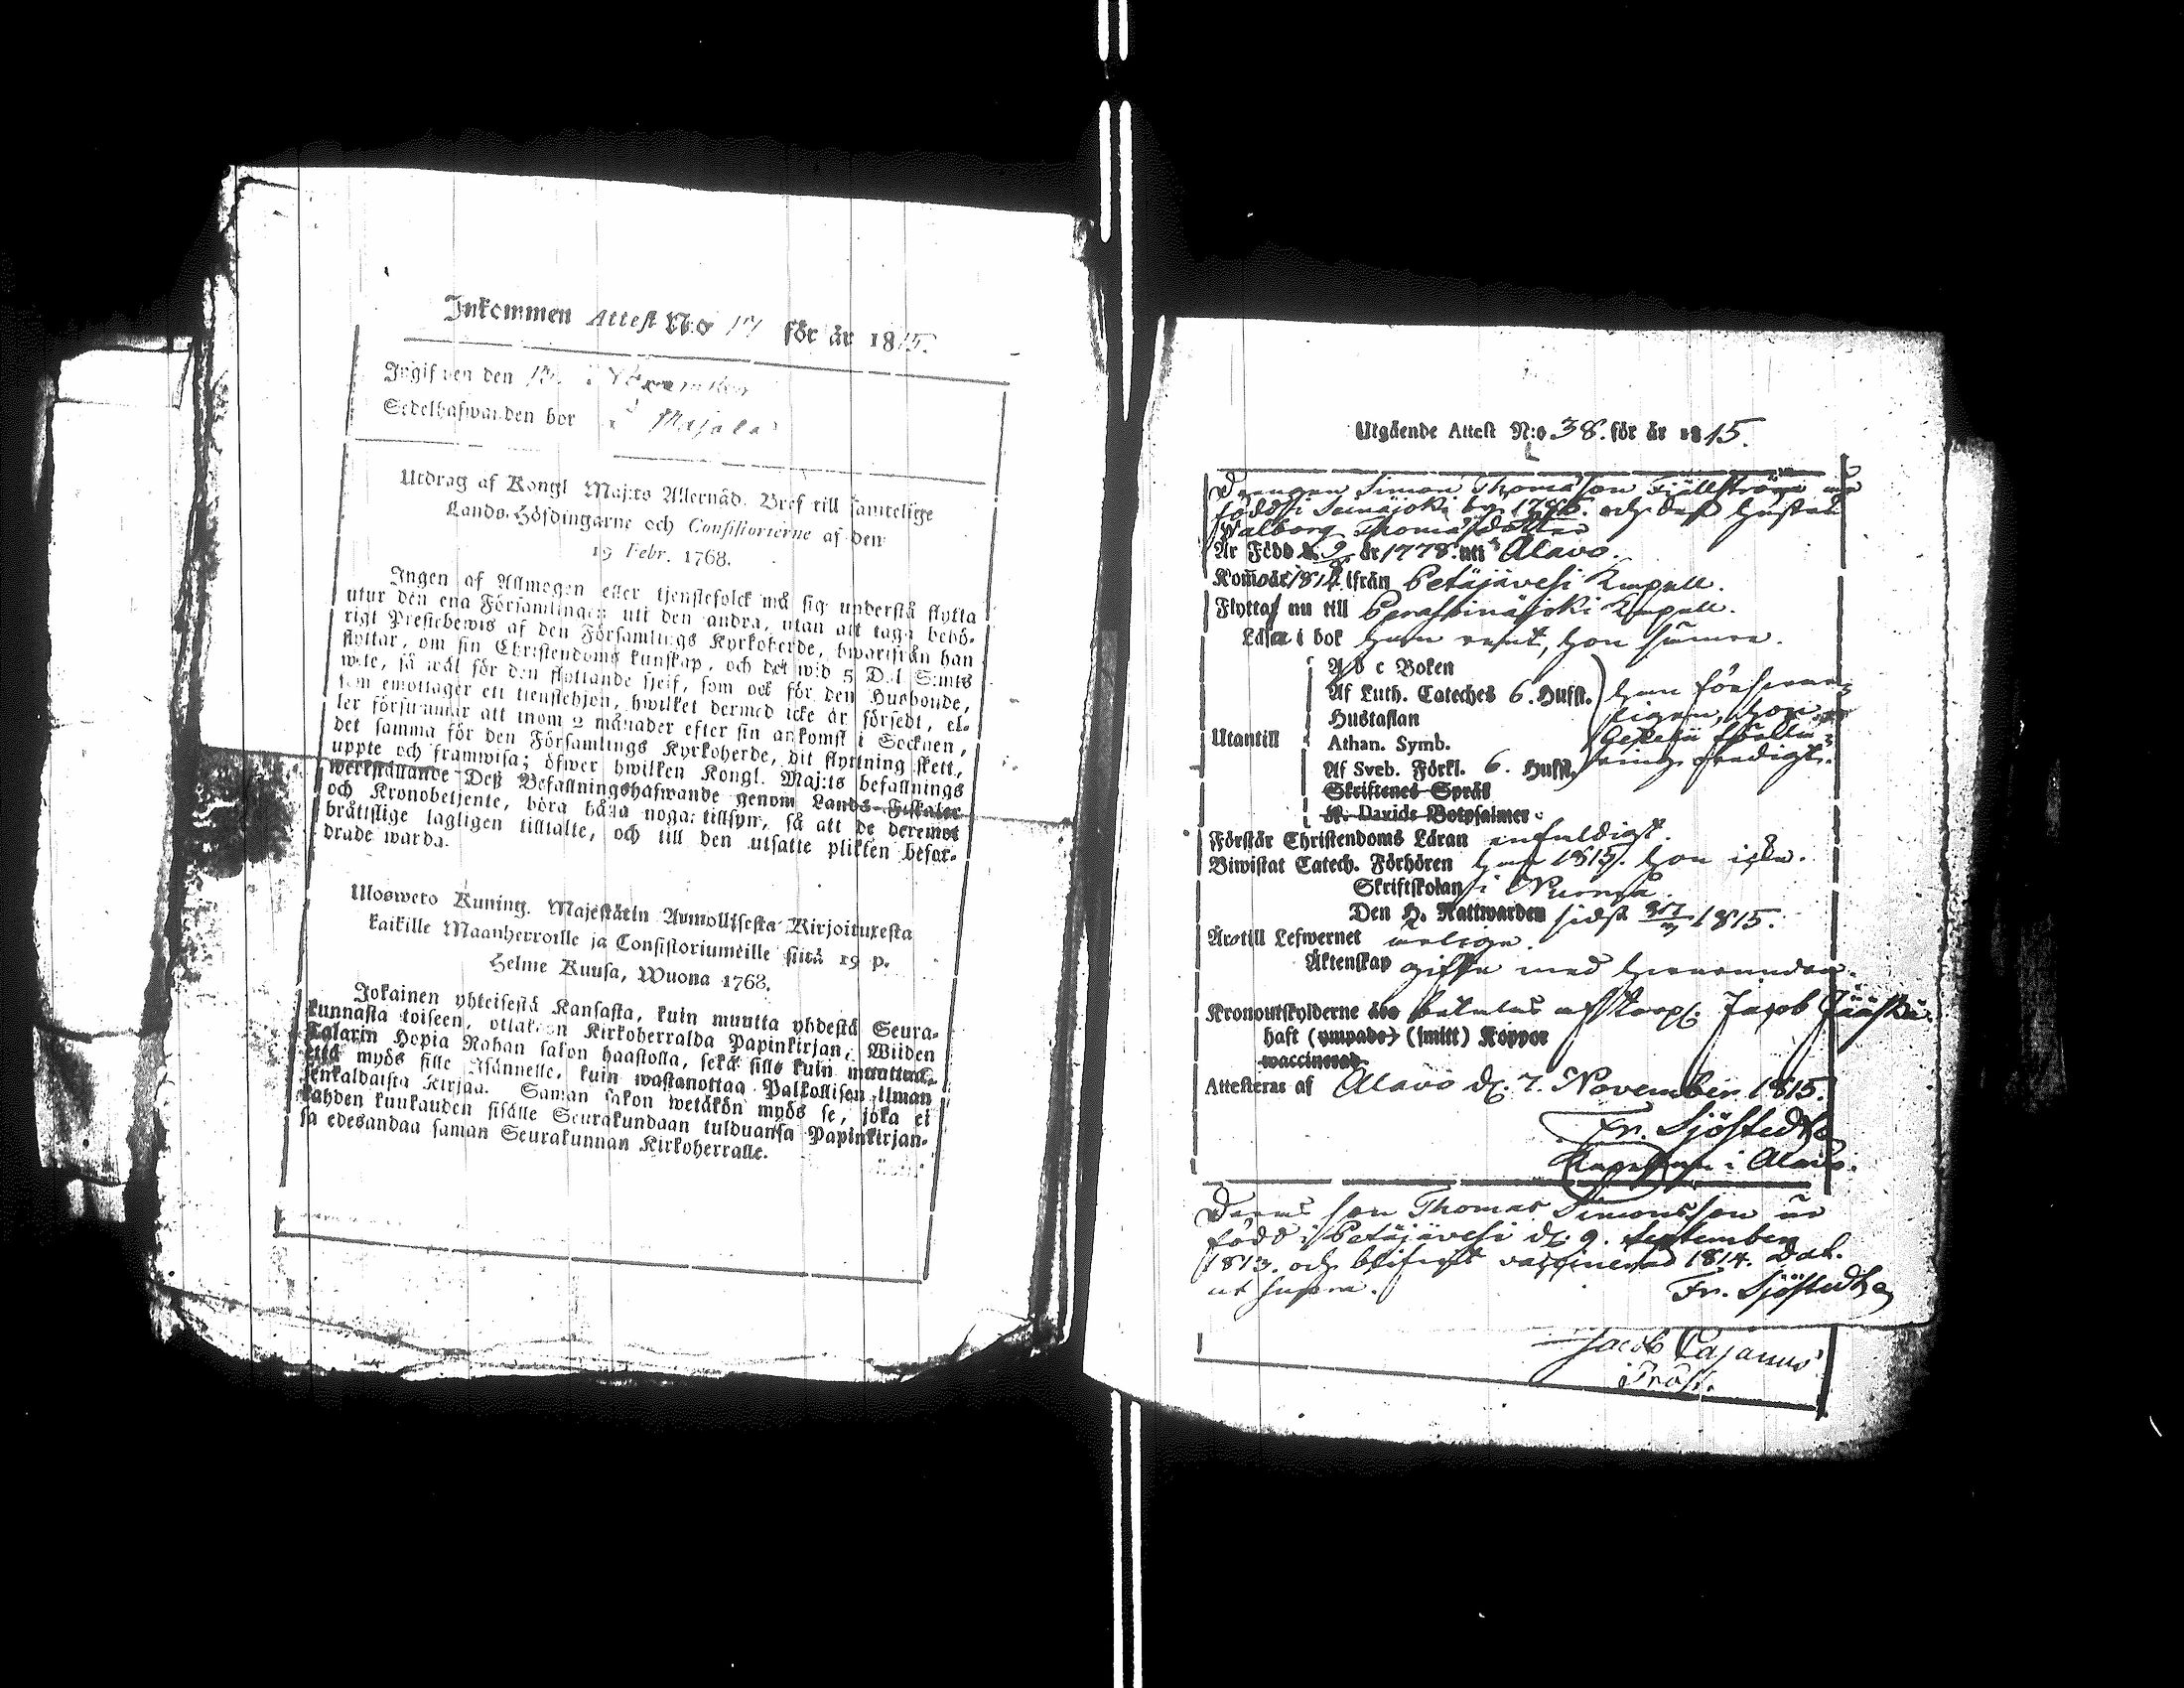 Inkommen Attest No 17 för år 1815.
Ingifven den
Sedelhafwanden bor i Majala
Utdrag af Kongl Maj:ts Allernåd. Bref till samtelige
Lands-Höfdingarne och Consistorierne af den
19 Febr. 1768.
Ingen af Allmogen eller tjenstefolck må sig understå flytta
utur den ena Församlingen uti den andra, utan att taga behö-
rigt Prestebewis af den Församlings Kyrkoherde, hwarifrån han
flyttar, om sin Christendoms kunskap, och det wid 5 Dal. S:mts
wite, så wäl för den flyttande sjelf, som ock för den Husbonde,
som emottager ett tienstehjon, hwilket dermed icke är försedt, el-
ler försummar att inom 2 månader efter sin ankomst i Socknen,
det samma för den Församlings Kyrkoherde, dit flyttning skett,
uppte och framwisa; öfwer hwilken Kongl. Maj:ts befallnings
werkställande Deß Befallningshafwande genom Lands-Fiskaler
och Kronobetjente, böra hålla noga tillsyn, så att de deremot
bråttslige lagligen tilltalte, och till den utsatte plikten befor-
drade warda.
Uloswето Kuning. Majestätin Armollisesta Kirjoituxesta
kaikille Maanherroille ja Consistoriumeille siitä 19 p.
Helme Kuusa, Wuona 1768.
Jokainen yhteisestä Kansasta, kuin muutta yhdestä Seura-
kunnasta toiseen, ottakoon Kirkoherralda Papinkirjan, Wiiden
Talarin Hopia Rahan sakon haastolla, sekä sille kuin muutta,
että myös sille Isännelle, kuin wastanottaa Palkollisen ilman
senkaldaista Kirjaa. Saman sakon wetäkön myös se, joka ei
kahden kuukauden sisälle Seurakundaan tulduansa Papinkirjan-
sa edesandaa saman Seurakunnan Kirkoherralle.
Utgående Attest N:o 38. för år 1815.
Drängen Simon Thomasson Fjällström är
född i Seinäjoki by 1786. och dess hustru
Walborg Thomasdotter
Är Född d. 9 år 1778. uti Alavo.
Kom år 1814 ifrån Petäjävesi Kapell.
Flyttar nu till Peraseinäjoki Kapell.
Läsa i bok han rent, hon sämre.
A b c Boken
Af Luth. Cateches 6. Hufst.
Hustaflan
Utantill Athan. Symb.
Af Sveb. Förkl. 6. Hufst.
Skriftenes Språk
K. Davids Botpsalmer.
Förstår Christendoms Läran enfaldigt.
Biwistat Catech. Förhören han 1815. hon icke.
Skriftskolan i
Den H. Nattwarden sidst 1815.
Äro till Lefwernet ärlige.
Äktenskap gifte med hvarandra.
Kronoutskylderne betalas af Torp. Jacob
haft (ympade) (smitt) Koppor
waccinerad
Attesteras af Alavo d. 7. November 1815.
Fr. Sjöstedt
Kapellan i Alavo.
Deras son Thomas Simonsson är
född i Petäjävesi d. 9. September
1813. och blifvit vaccinerad 1814. Dat.
ut supra.
Fr. Sjöstedt
Jacob Cajanus
Prost.